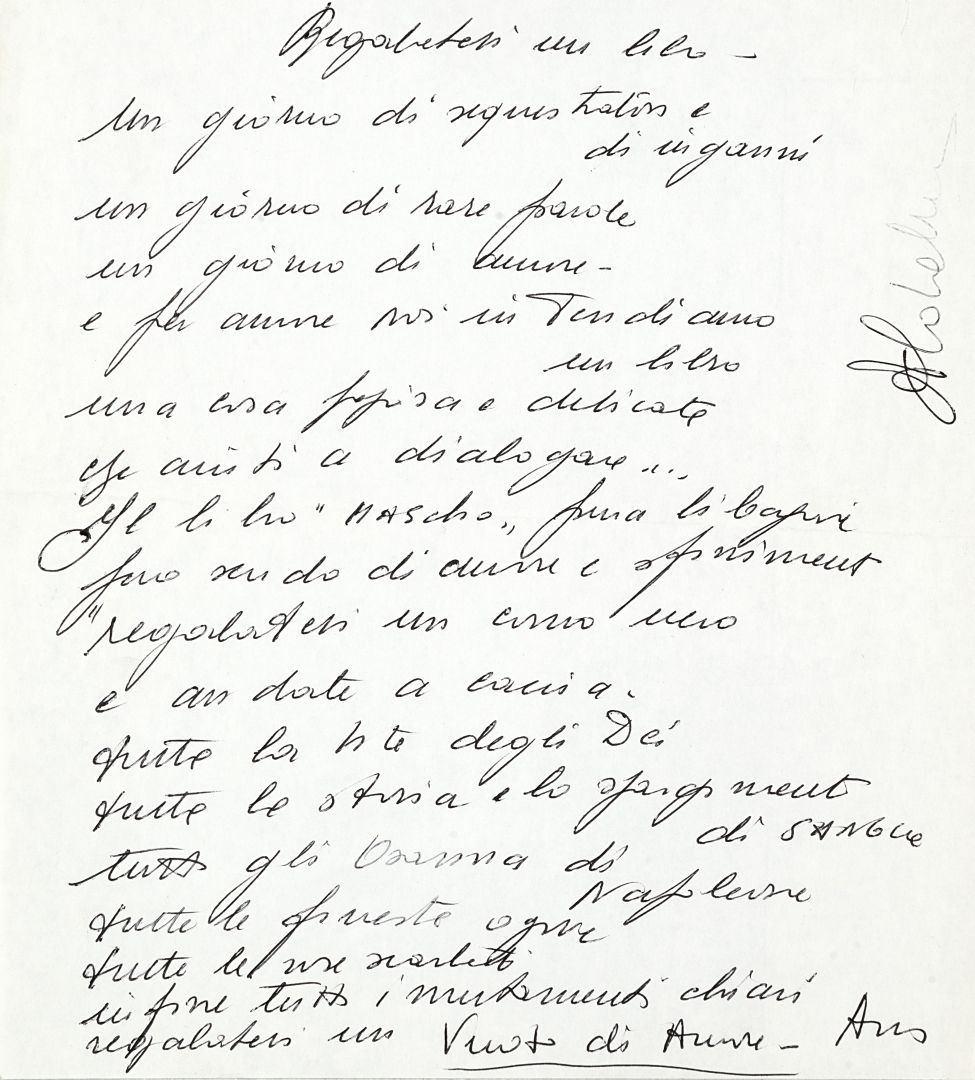 Regalatevi un libro –
un giorno di sequestratori e
di inganni
un giorno di rare parole
un giorno di amore –
e per amore noi intendiamo
un libro
una cosa preziosa e delicata
che aiuti a dialogare....
Il libro "MAScho„
fero di amore e
"regalatevi un corno vero
e andate a caccia.
tutte la vita degli Dei
tutta la storia e lo spargimento
di SANGUE
tutti gli Osanna di
Napoleone
tutte le finestre ogive
tutte le rose scarlatte
infine tutti i mutamenti chiari
regalatevi un Vuoto di Amore –